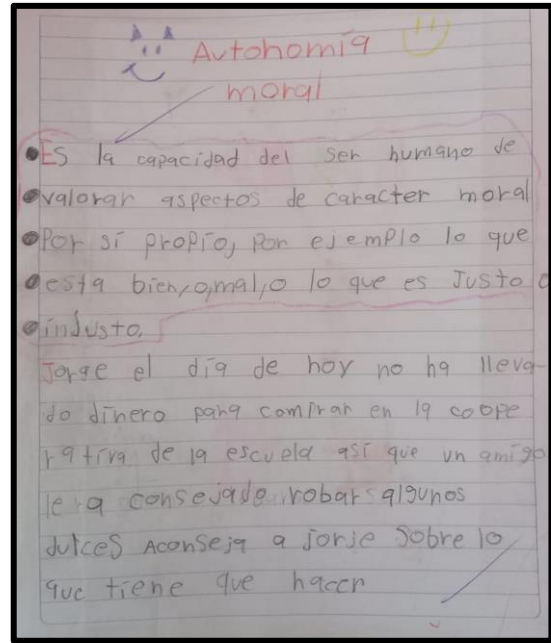 Autonomía
moral
Es la capacidad del ser humano de
valorar aspectos de caracter moral
Por sí propio, por ejemplo lo que
esta bien, o, mal, o lo que es Justo o
industo.
Jorge el día de hoy no ha lleva
do dinero para comprar en la coope
rativa de la escuela así que un amigo
le a consejado robar algunos
dulces Aconseja a jorje sobre lo
que tiene que hacer